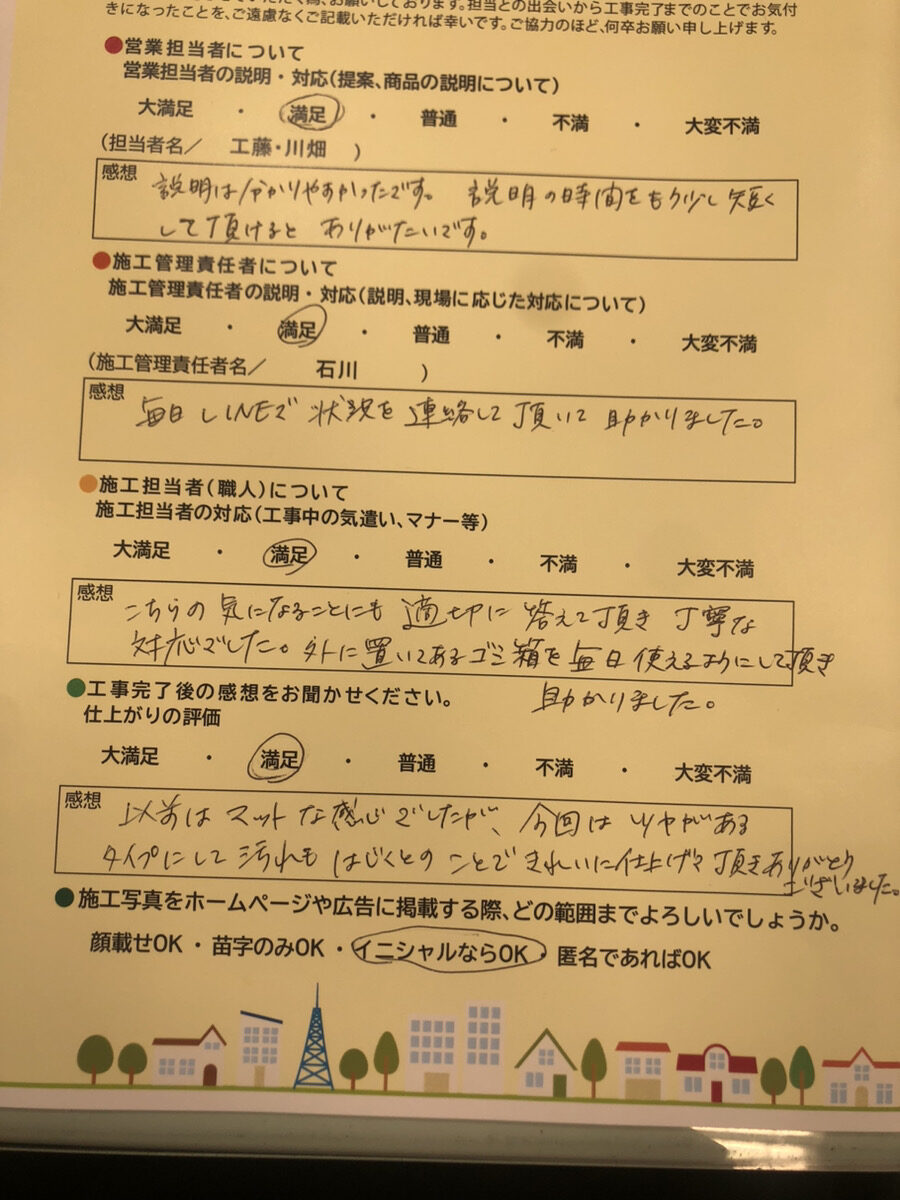 お願いしております。担当との出会いから工事完了までのことでお気付
きになったことを、ご遠慮なくご記載いただければ幸いです。ご協力のほど、何卒お願い申し上げます。
●営業担当者について
営業担当者の説明・対応(提案、商品の説明について)
大満足 ・ 満足 ・ 普通 ・ 不満 ・ 大変不満
(担当者名／ 工藤・川畑 )
感想
説明は分かりやすかったです。 説明の時間をもう少し短く
して頂けると ありがたいです。
●施工管理責任者について
施工管理責任者の説明・対応(説明、現場に応じた対応について)
大満足 ・ 満足 ・ 普通 ・ 不満 ・ 大変不満
(施工管理責任者名／ 石川 )
感想
毎日LINEで 状況を連絡して頂いて 助かりました。
●施工担当者(職人)について
施工担当者の対応(工事中の気遣い、マナー等)
大満足 ・ 満足 ・ 普通 ・ 不満 ・ 大変不満
感想
こちらの気になることにも適切に答えて頂き 丁寧な
対応でした。外に置いてあるゴミ箱を毎日使えるようにして頂き
助かりました。
●工事完了後の感想をお聞かせください。
仕上がりの評価
大満足 ・ 満足 ・ 普通 ・ 不満 ・ 大変不満
感想
以前はマットな感じでしたが、今回はツヤがある
タイプにして汚れもはじくとのことできれいに仕上げて頂きありがとう
ございました。
●施工写真をホームページや広告に掲載する際、どの範囲までよろしいでしょうか。
顔載せOK・苗字のみOK・イニシャルならOK・匿名であればOK